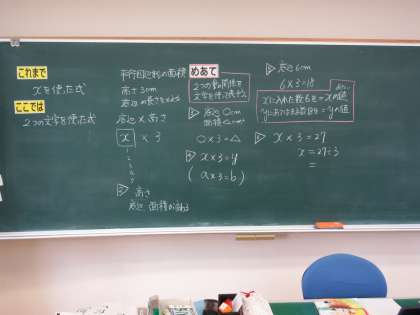 これまで
xを使った式
ここでは
2つの文字を使った式
平行四辺形の面積
高さ3cm
底辺の長さを
底辺×高さ
x × 3
高さ
底辺 面積が
めあて
2つの量の関係を
文字を使って表そう。
底辺 ○cm
面積 △cm²
○×3=△
x×3=y
(a×3=b)
底辺 6cm
6×3=18
xに入れた数6を=xの値
yにあてはまる数18を=yの値
x×3=27
x=27÷3
=